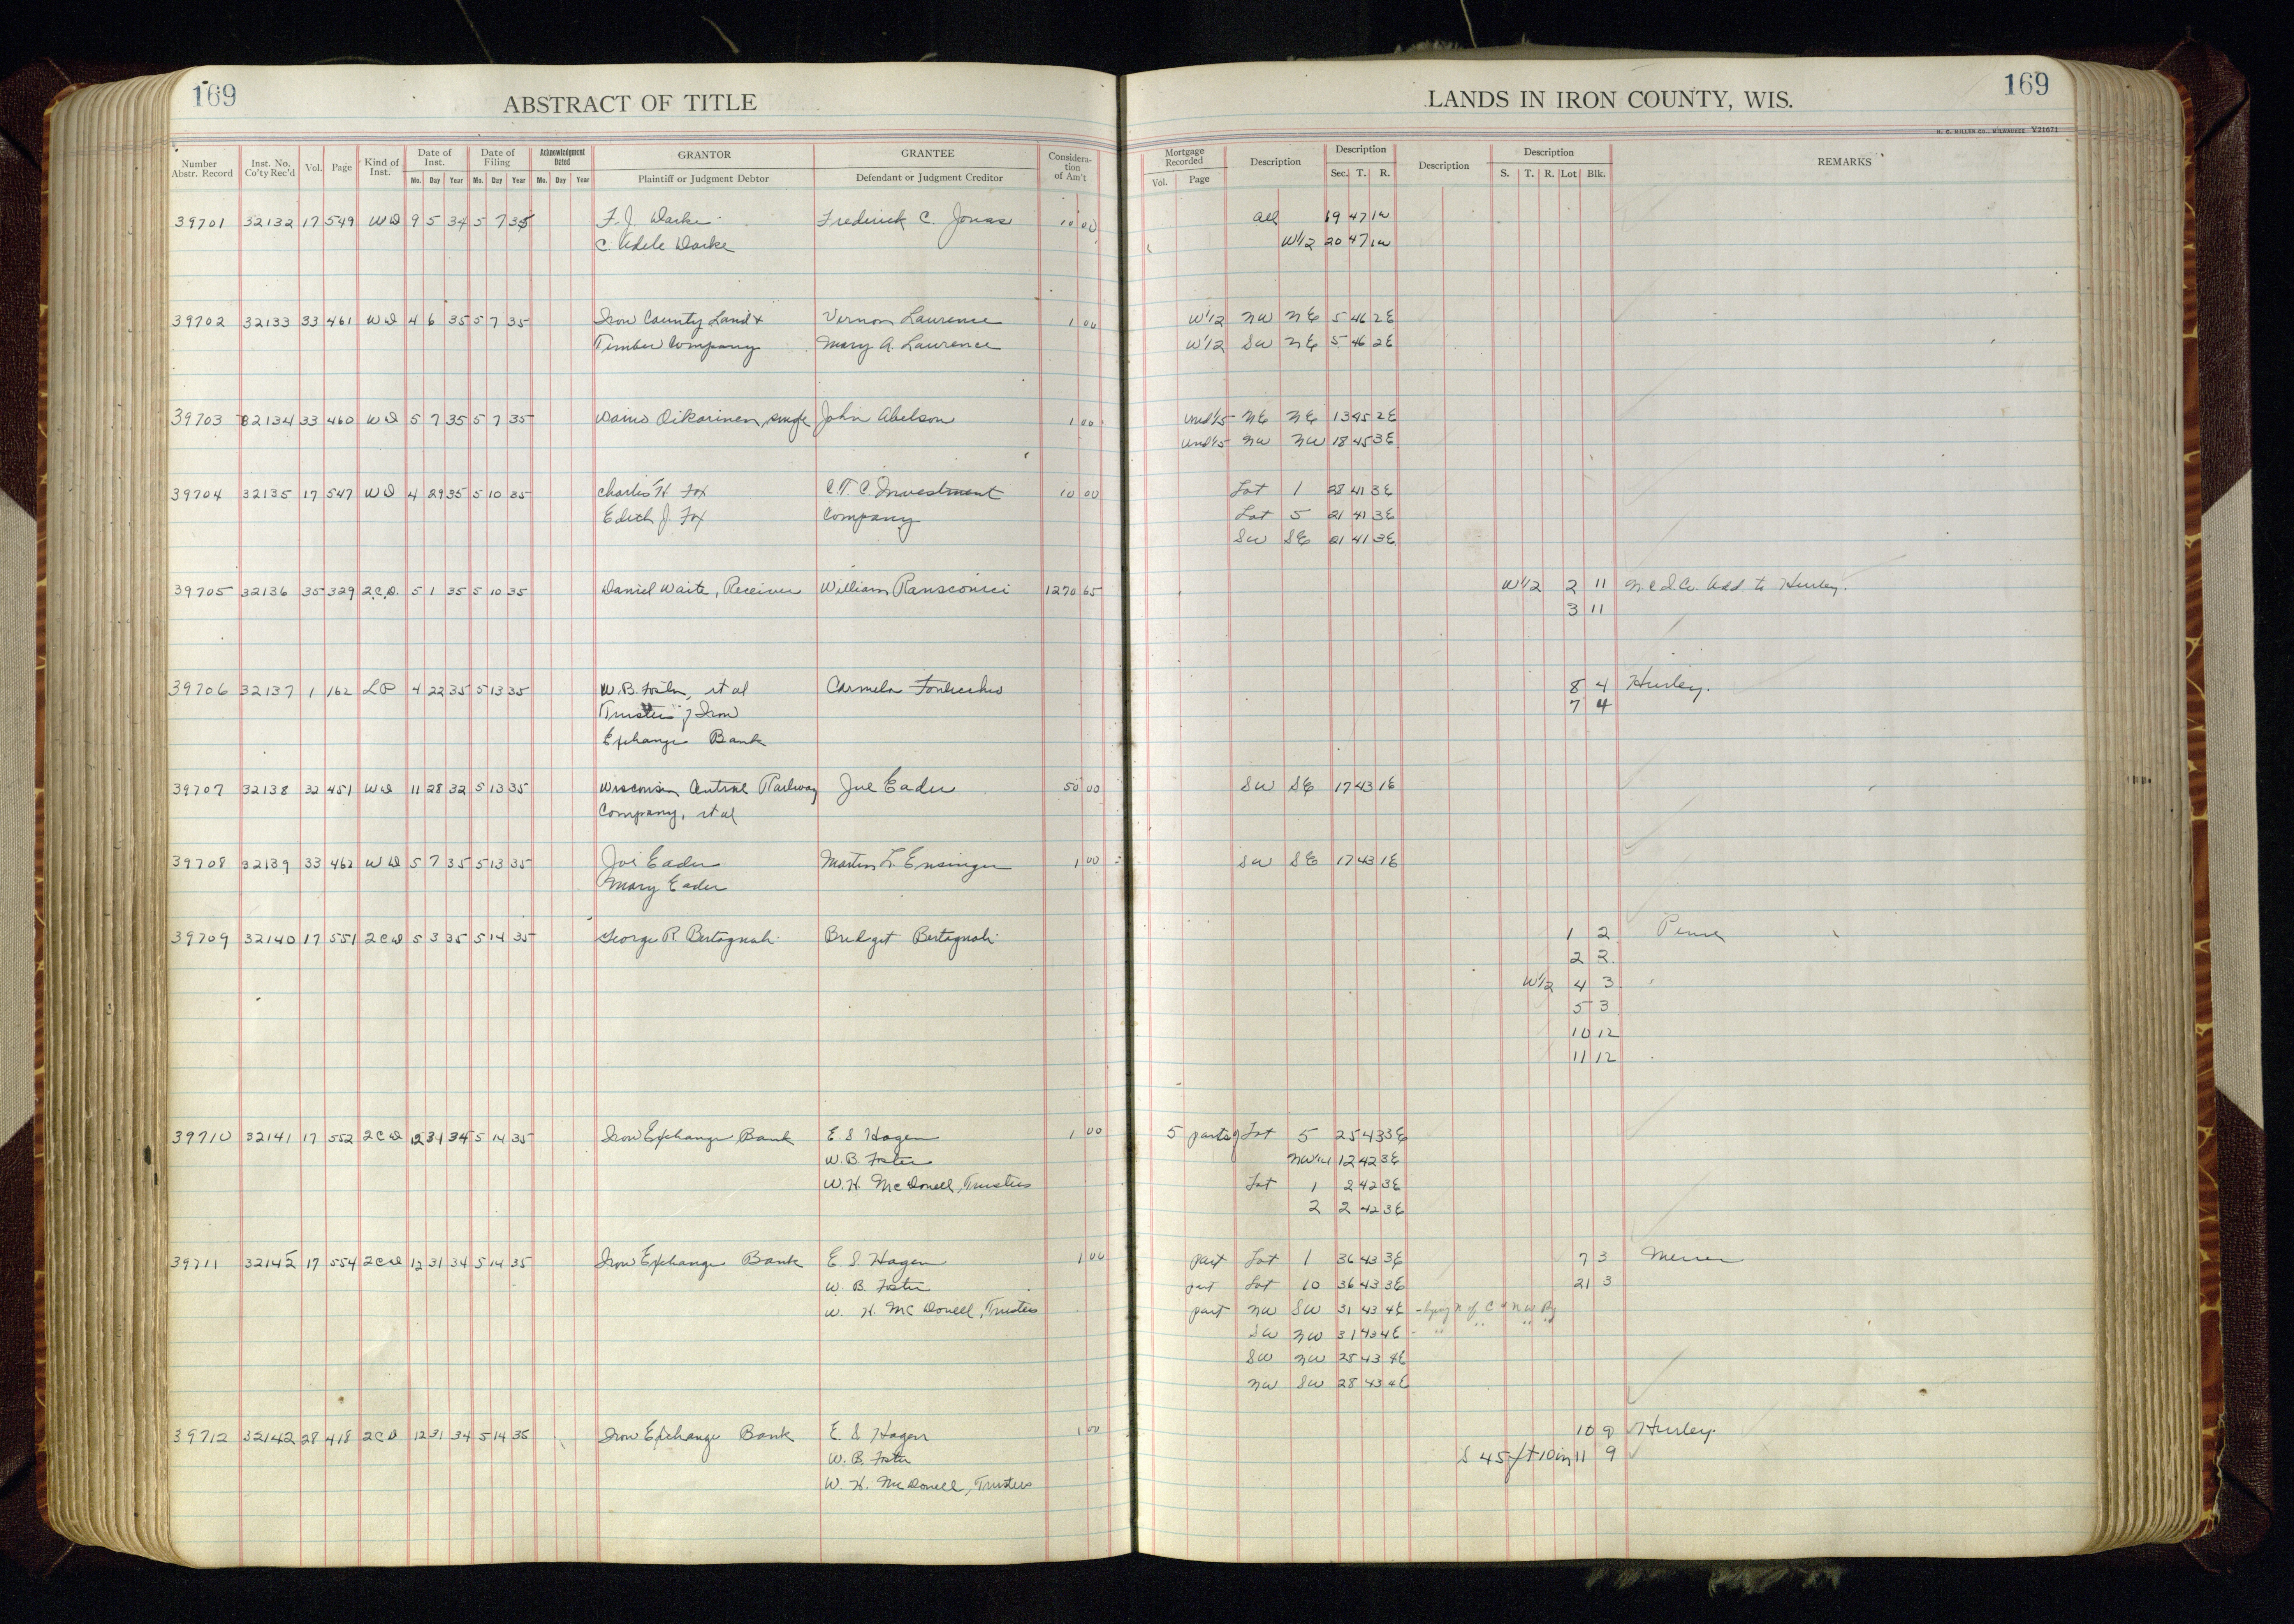 169
ABSTRACT OF TITLE
LANDS IN IRON COUNTY, WIS.
169
H. C. MILLER CO., MILWAUKEE Y21671
Number Abstr. Record | Inst. No. Co'ty Rec'd | Vol. | Page | Kind of Inst. | Date of Inst. Mo. Day Year | Date of Filing Mo. Day Year | Acknowledgment Dated Mo. Day Year | GRANTOR Plaintiff or Judgment Debtor | GRANTEE Defendant or Judgment Creditor | Considera-tion of Am't | Mortgage Recorded Vol. Page | Description | Description Sec. T. R. | Description | Description S. T. R. Lot Blk. | REMARKS
39701 32132 17 549 WD 9 5 34 5 7 35 F. J. Darke Frederick C. Jonas 10 00 all 19 47 1W
C. Adele Darke W1/2 20 47 1W
39702 32133 33 461 WD 4 6 35 5 7 35 Iron County Land & Vernon Laurence 1 00 W1/2 NW NE 5 46 2E
Timber Company Mary A. Laurence W1/2 SW NE 5 46 2E
39703 32134 33 460 WD 5 7 35 5 7 35 Waino Oikarinen, single John Abelson 1 00 Und1/5 NE NE 13 45 2E
Und1/5 NW NW 18 45 3E
39704 32135 17 547 WD 4 29 35 5 10 35 Charles H Fox C. T. C. Investment 10 00 Lot 1 28 41 3E
Edith J. Fox Company Lot 5 21 41 3E
SW SE 21 41 3E
39705 32136 35 329 2.C.D. 5 1 35 5 10 35 Daniel Waite, Receiver William 1270 65 W1/2 2 11 Add. to Hurley.
3 11
39706 32137 1 162 LP 4 22 35 5 13 35 W. B. Foster, et al Carmela 8 4 Hurley.
Trustees of Iron 7 4
Exchange Bank
39707 32138 32 451 WD 11 28 32 5 13 35 Wisconsin Central Railway Joe Eader 50 00 SW SE 17 43 1E
Company, et al
39708 32139 33 462 WD 5 7 35 5 13 35 Joe Eader Martin L. Ensinger 1 00 SW SE 17 43 1E
Mary Eader
39709 32140 17 551 2CD 5 3 35 5 14 35 George R Bertagnoli Bridget Bertagnoli 1 2 Pence
2 2
W1/2 4 3
5 3
10 12
11 12
39710 32141 17 552 2CD 12 31 34 5 14 35 Iron Exchange Bank E. S Hagen 1 00 5 parts of Lot 5 25 43 3E
W. B. Foster 12 42 3E
W. H. McDonell, Trustees Lot 1 2 42 3E
2 2 42 3E
39711 32145 17 554 2CD 12 31 34 5 14 35 Iron Exchange Bank E. S Hagen 1 00 part Lot 1 36 43 3E 7 3 Mercer
W. B. Foster prt Lot 10 36 43 3E 21 3
W. H. McDonell, Trustees part NW SW 31 43 4E - lying N of C & N W Ry
SW NW 31 43 4E - " " " "
SW NW 25 43 4E
NW SW 28 43 4E
39712 32142 28 418 2CD 12 31 34 5 14 35 Iron Exchange Bank E. S Hagen 1 00 10 9 Hurley.
W. B. Foster S 45 ft 10 in 11 9
W. H. McDonell, Trustees